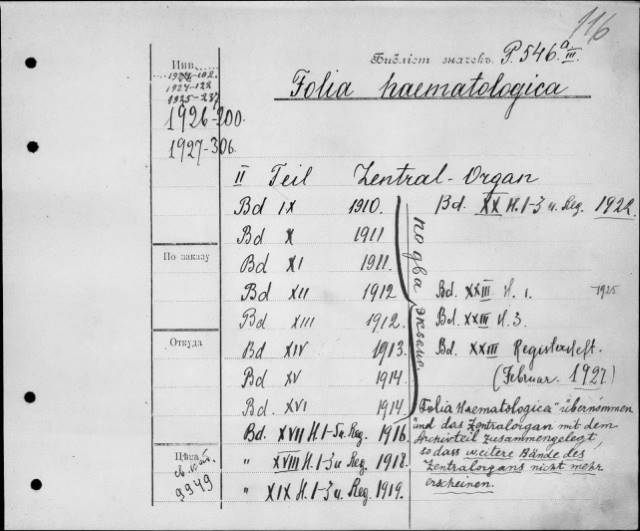 116
Библіот. значекъ. P.546ª III.
Folia haematologica
Инв.
1924-102.
1924-122
1925-237
1926-200.
1927-306.
II Teil Zentral-Organ
Bd IX 1910.
Bd X 1911
Bd XI 1911.
Bd XII 1912
Bd XIII 1912.
Bd XIV 1913.
Bd XV 1914.
Bd XVI 1914
Bd. XVII H.1-5 u. Reg. 1916.
" XVIII H.1-3 u. Reg. 1918.
" XIX H.1-3 u. Reg. 1919.
по два экземп.
Bd. XX H.1-3 u. Reg. 1922.
Bd. XXIII H. 1. 1925
Bd. XXIII H. 3.
Bd. XXIII Registerheft.
(Februar. 1927)
"Folia Haematologica" übernommen
und das Zentralorgan mit dem
Archivteil zusammengelegt,
so dass weitere Bände des
Zentralorgans nicht mehr
erscheinen.
По заказу
Откуда
Цѣна
9949